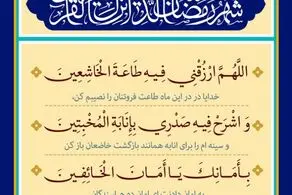 شهر رمضان الذی انزل فیه القرآن
اَللّهُمَّ ارْزُقْنِي فِيهِ طَاعَةَ الْخَاشِعِينَ
خدایا در این ماه طاعت فروتنان را نصیبم کن،
وَ اشْرَحْ فِيهِ صَدْرِي بِإِنَابَةِ الْمُخْبِتِينَ
و سینه ام را برای انابه همانند بازگشت خاضعان باز کن
بِأَمَانِكَ يَا أَمَانَ الْخَائِفِينَ